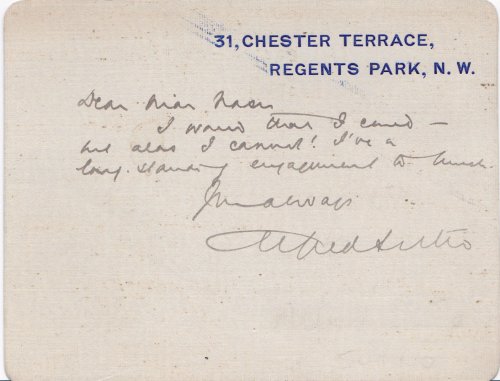 31, CHESTER TERRACE,
REGENTS PARK, N. W.
Dear Miss
I would that I could —
but alas I cannot! I've a
long-standing engagement to lunch.
Yrs always
Alfred Sutro